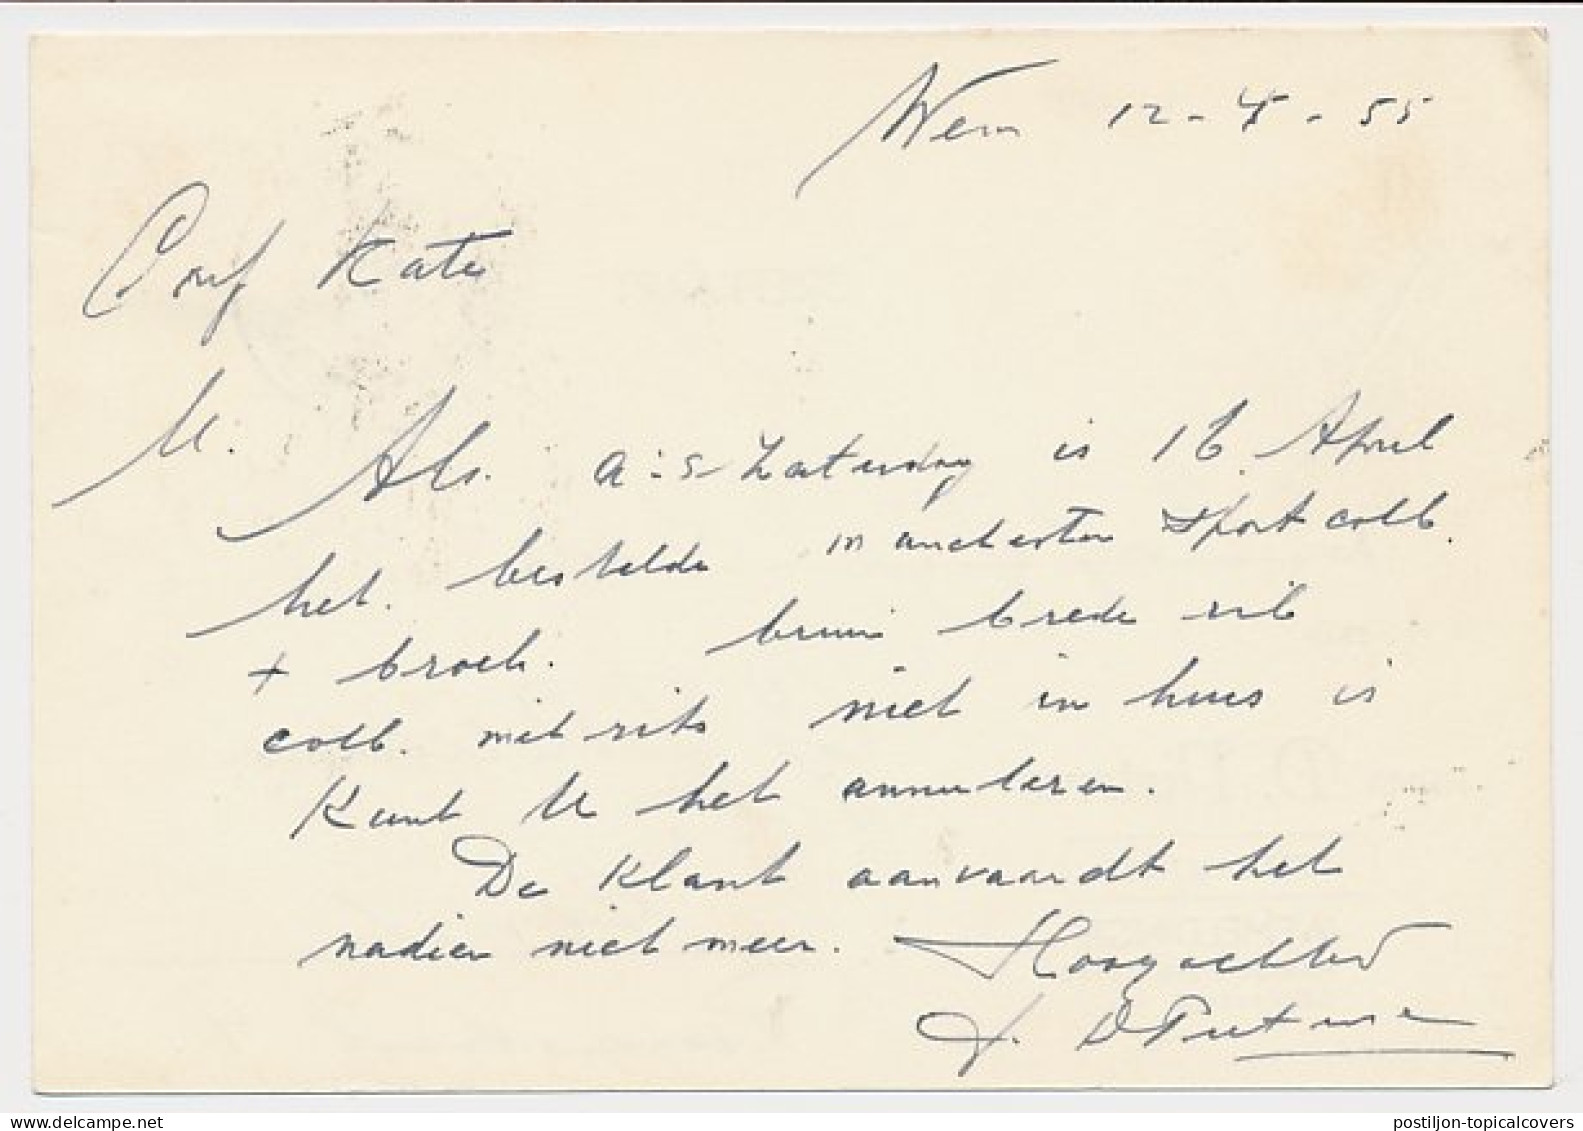 12 - 4 - 55
Conf Kater
M. Als. a:s Zaterdag is 16 April
het. bestelde manchester sport colb.
+ broek. bruin brede rib
colb. met rits niet in huis is
Kunt U het annuleren.
De Klant aanvaardt het
nadien niet meer. Hoogachtend
J.
postiljon-topicalcovers